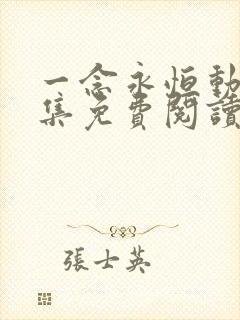 一念永恒動
集免費閱讀
張士英